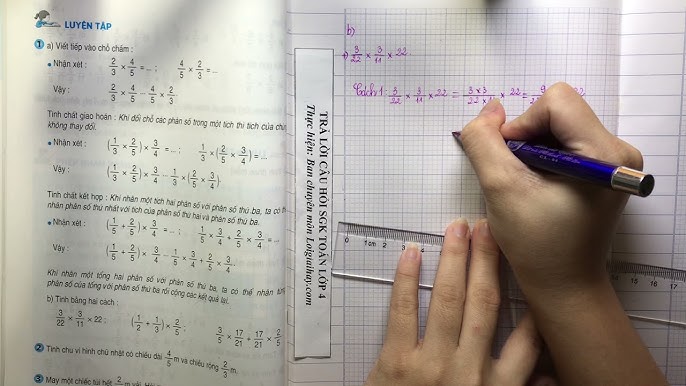 LUYỆN TẬP
1 a) Viết tiếp vào chỗ chấm :
• Nhận xét : 2/3 × 4/5 = ... ; 4/5 × 2/3 = ...
Vậy : 2/3 × 4/5 ... 4/5 × 2/3
Tính chất giao hoán : Khi đổi chỗ các phân số trong một tích thì tích của chúng
không thay đổi.
(1/3 × 2/5) × 3/4 = ... ; 1/3 × (2/5 × 3/4) = ...
• Nhận xét :
Vậy : (1/3 × 2/5) × 3/4 ... 1/3 × (2/5 × 3/4)
Tính chất kết hợp : Khi nhân một tích hai phân số với phân số thứ ba, ta có thể
nhân phân số thứ nhất với tích của phân số thứ hai và phân số thứ ba.
• Nhận xét : (1/5 + 2/5) × 3/4 = ... 1/5 × 3/4 + 2/5 × 3/4 =
Vậy : (1/5 + 2/5) × 3/4 ... 1/5 × 3/4 + 2/5 × 3/4
Khi nhân một tổng hai phân số với phân số thứ ba, ta có thể nhân từng
phân số của tổng với phân số thứ ba rồi cộng các kết quả lại.
b) Tính bằng hai cách :
3/22 × 3/11 × 22 ; (1/2 + 1/3) × 2/5 ; 3/5 × 17/21 + 17/21 × 2/5
2 Tính chu vi hình chữ nhật có chiều dài 4/5 m và chiều rộng 2/3 m.
3 May một chiếc túi hết 2/3 m vải.
TRẢ LỜI CÂU HỎI SGK TOÁN LỚP 4
Thực hiện: Ban chuyên môn Loigiaihay.com
b)
+) 3/22 × 3/11 × 22
Cách 1: 3/22 × 3/11 × 22 = 3 × 3/22 × × 22 = 9
0 1cm 2 3 4
13 14 15 16 17